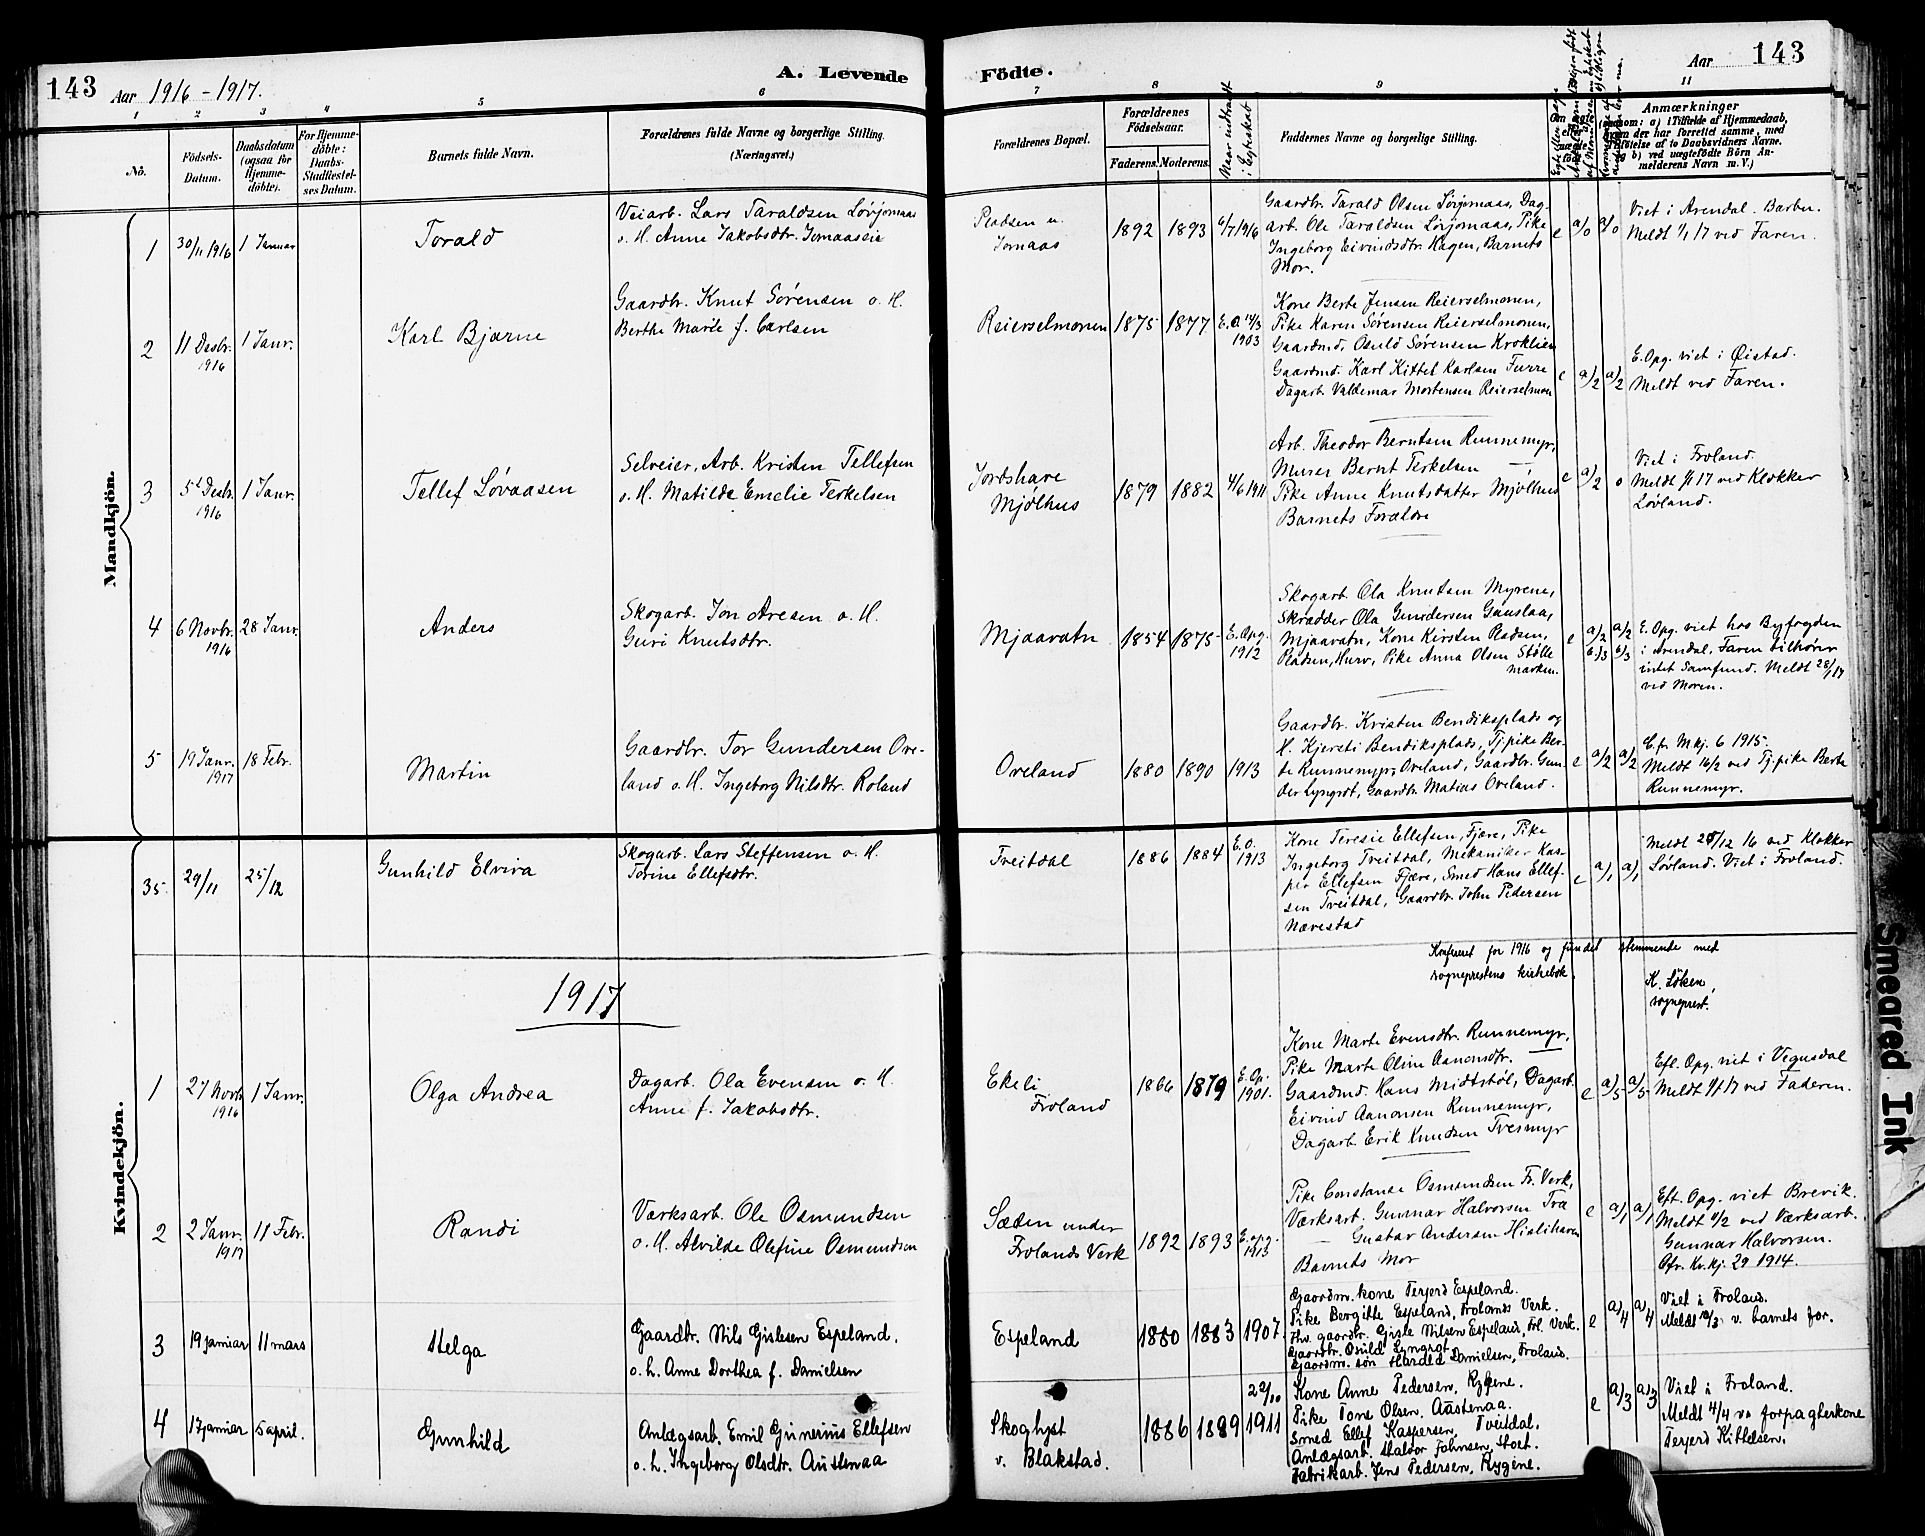 143 Aar 1916-1917. A. Levende
Födte. Aar 143
1 2 3 4 5 6
7 8 9 11
No.
Födsels-
Datum.
Daabsdatum
(ogsaa for
Hjemme-
döbte).
For Hjemme-
döbte:
Daabs-
Stadfæstel-
ses Datum.
Barnets fulde Navn.
Forældrenes fulde Navne og borgerlige Stilling.
(Næringsvei.)
Forældrenes Bopæl.
Forældrenes
Födselsaar.
Faderens. Moderens.
Naar indtraadt
i Egteskab
Faddernes Navne og borgerlige Stilling.
Anmærkninger
Mandkjön.
1
30/11 1916
1 Januar
Torald
Veiarb. Lars Taraldsen Lövjomaas
o. H. Anne Jakobsdtr. Jomaaseie
Pladsen u.
Jomaas
1892
1893
6/7 1916
Gaardbr. Tarald Olsen Lövjomaas, Dag-
arb. Ole Taraldsen Lövjomaas, Pike
Ingeborg Eivindsdtr. Hagen, Barnets
Mor.
e
a/0
a/0
Viet i Arendal. Barbu.
Meldt 1/1 17 ved Faren.
2
11 Desbr.
1916
1 Janr.
Karl Bjarne
Gaardbr. Knut Sörensen o. H.
Berthe Marie f. Carlsen
Reierselmonen
1875
1877
E.O. 14/3
1903
Kone Berte Jensen Reierselmonen,
Pike Karen Sörensen Reierselmonen,
Gaardmd. Osuld Sörensen Kroklien
Gaardmd. Karl Kittel Karlsen Furre
Dagarb. Valdemar Mortensen Reierselmon
e
a/2
a/2
E. Opg. viet i Öistad.
Meldt ved Faren.
3
5t Desbr.
1916
1 Janr.
Tellef Lövaasen
Selveier, Arb. Kristen Tellefsen
o. H. Matilde Emelie Terkelsen
Jordshave
Mjölhus
1879
1882
4/6 1911
Arb. Theodor Berntsen Runnemyr,
Murer Bernt Terkelsen —
Pike Anne Knutsdatter Mjölhus
Barnets Forældre
e
a/2
0
Viet i Froland.
Meldt 1/1 17 ved Klokker
Lövland.
4
6 Novbr.
1916
28 Janr.
Anders
Skogarb. Jon Aresen o. H.
Guri Knutsdtr.
Mjaavatn
1854
1875
E. Opg.
1912
Skogarb. Ola Knutsen Myrene,
Skrædder Ola Gundersen Gauslaa,
Mjaavatn, Kone Kirsten Pladsen,
Pladsen, Hurv, Pike Anna Olsen Stölle
marken.
e
a/2
b/3
a/2
b/3
E. Opg. viet hos Byfogden
i Arendal, Faren tilhörer
intet Samfund. Meldt 28/1 17
ved Moren.
5
19 Janr.
1917
18 Febr.
Martin
Gaardbr. Tor Gundersen Ove-
land o. H. Ingeborg Nilsdtr. Roland
Oveland
1880
1890
1913
Gaardbr. Kristen Bendiksplads og
H. Kjersti Bendiksplads, Tj.pike Ber-
te Runnemyr, Oveland, Gaardbr. Gun-
der Lyngrot, Gaardbr. Matias Oveland.
e
a/2
a/2
Cfr. Mkj. 6 1915.
Meldt 16/2 ved Tj.pike Berte
Runnemyr.
Kvindekjön.
35.
29/11
25/12
Gunhild Elvira
Skogarb. Lars Steffensen o. H.
Torine Ellefsdtr.
Treitdal
1886
1884
E.O.
1913
Kone Teresie Ellefsen, Fjære, Pike
Ingeborg Treitdal, Mekaniker Kas-
per Ellefsen Fjære, Smed Hans Ellef-
sen Treitdal, Gaardbr. John Pedersen
Nævestad
e
a/1
a/1
Meldt 25/12 16 ved Klokker
Lövland. Viet i Froland.
Konferert for 1916 og fundet stemmende med
sogneprestens kirkebok.
K. Löken,
sogneprest.
1917
1
27 Novb.
1916
1 Janr.
Olga Andrea
Dagarb. Ola Evensen o. H.
Anne f. Jakobsdtr.
Ekeli
Froland
1866
1879
E. Op.
1901.
Kone Marte Evensdtr. Runnemyr,
Pike Marte Oline Aanonsdtr. —
Gaardmd. Hans Midtstöl, Dagarb.
Eivind Aanonsen Runnemyr,
Dagarb. Erik Knudsen Tvesmyr
e
a/5
a/5
Eft. Opg. viet i Vegusdal
Meldt 1/1 17 ved Faderen.
2
2 Janr.
1917
11 Febr.
Randi
Værksarb. Ole Osmundsen
o. H. Alvilde Olefine Osmundsen
Sæden under
Frolands Verk
1892
1893
E. opg.
1913
Pike Constanse Osmundsen Fr. Verk,
Værksarb. Gunnar Halvorsen Fra
— Gustav Andersen Hislihaven
Barnets Mor
e
a/1
a/1
Eft. Opg. viet Brevik.
Meldt 11/2 ved Værksarb.
Gunnar Halvorsen.
Cfr. Kv.kj. 29 1914.
3
19 januar
11 mars
Helga
Gaardbr. Nils Gislesen Espeland,
o. h. Anne Dorthea f. Danielsen
Espeland
1880
1883
1907.
Gaardm. kone Terjerd Espeland.
Pike Bergitte Espeland, Frolands Verk.
Fhv. gaardbr. Gisle Nilsen Espeland, Frl. Verk.
Gaardbr. Osuld Lyngrot
Gaardm. sön Harald Danielsen, Froland.
e
a/4
a/4
Viet i Froland.
Meldt 10/3 v. barnets far.
4
17 januar
5 april.
Gunhild
Anlægsarb. Emil Gunerius Ellefsen
o. h. Ingeborg Olsdtr. Austenaa
Skoglyst
v. Blakstad.
1886
1889
22/10
1911
Kone Anne Pedersen, Rygene.
Pike Tone Olsen. Austenaa.
Smed Ellef Kaspersen, Tveitdal,
Anlægsarb. Halvor Johnsen, Stoet.
Fabrikarb. Jens Pedersen, Rygene.
e
a/3
a/3
Viet i Froland.
Meldt 4/4 va forpagterkone
Terjerd Kittelsen.
Smeared Ink